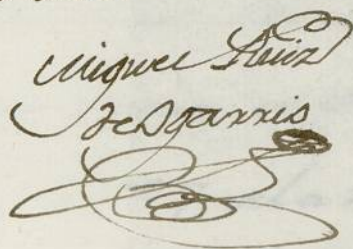 Miguel Ruiz
de Ogarrio